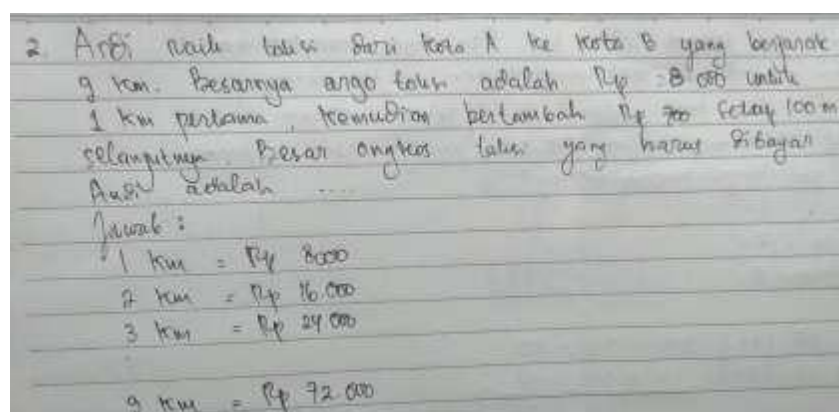 2. Ardi naik taksi dari kota A ke kota B yang berjarak
9 km. Besarnya argo taksi adalah Rp 8 000 untuk
1 km pertama, kemudian bertambah Rp 700 setiap 100 m
selanjutnya. Besar ongkos taksi yang harus dibayar
Ardi adalah ....
Jawab :
1 km = Rp 8000
2 km = Rp 16.000
3 km = Rp 24 000
9 km = Rp 72 000